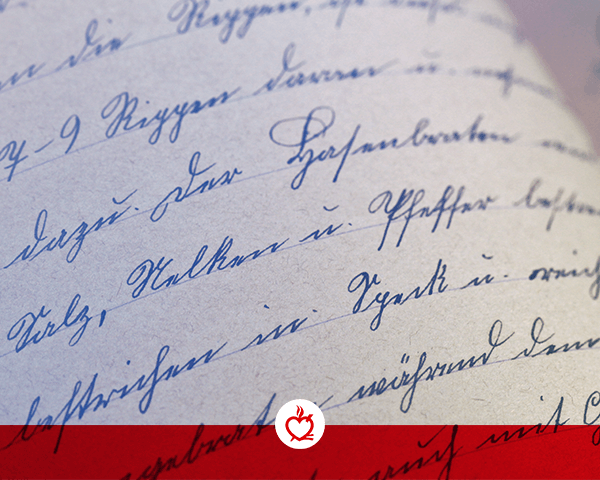 die Rippen, ist
7-9 Rippen daran u.
dazu. Der Hasenbraten
Salz, Nelken u. Pfeffer
bestrichen in. Speck u. reich
während dem
auch mit